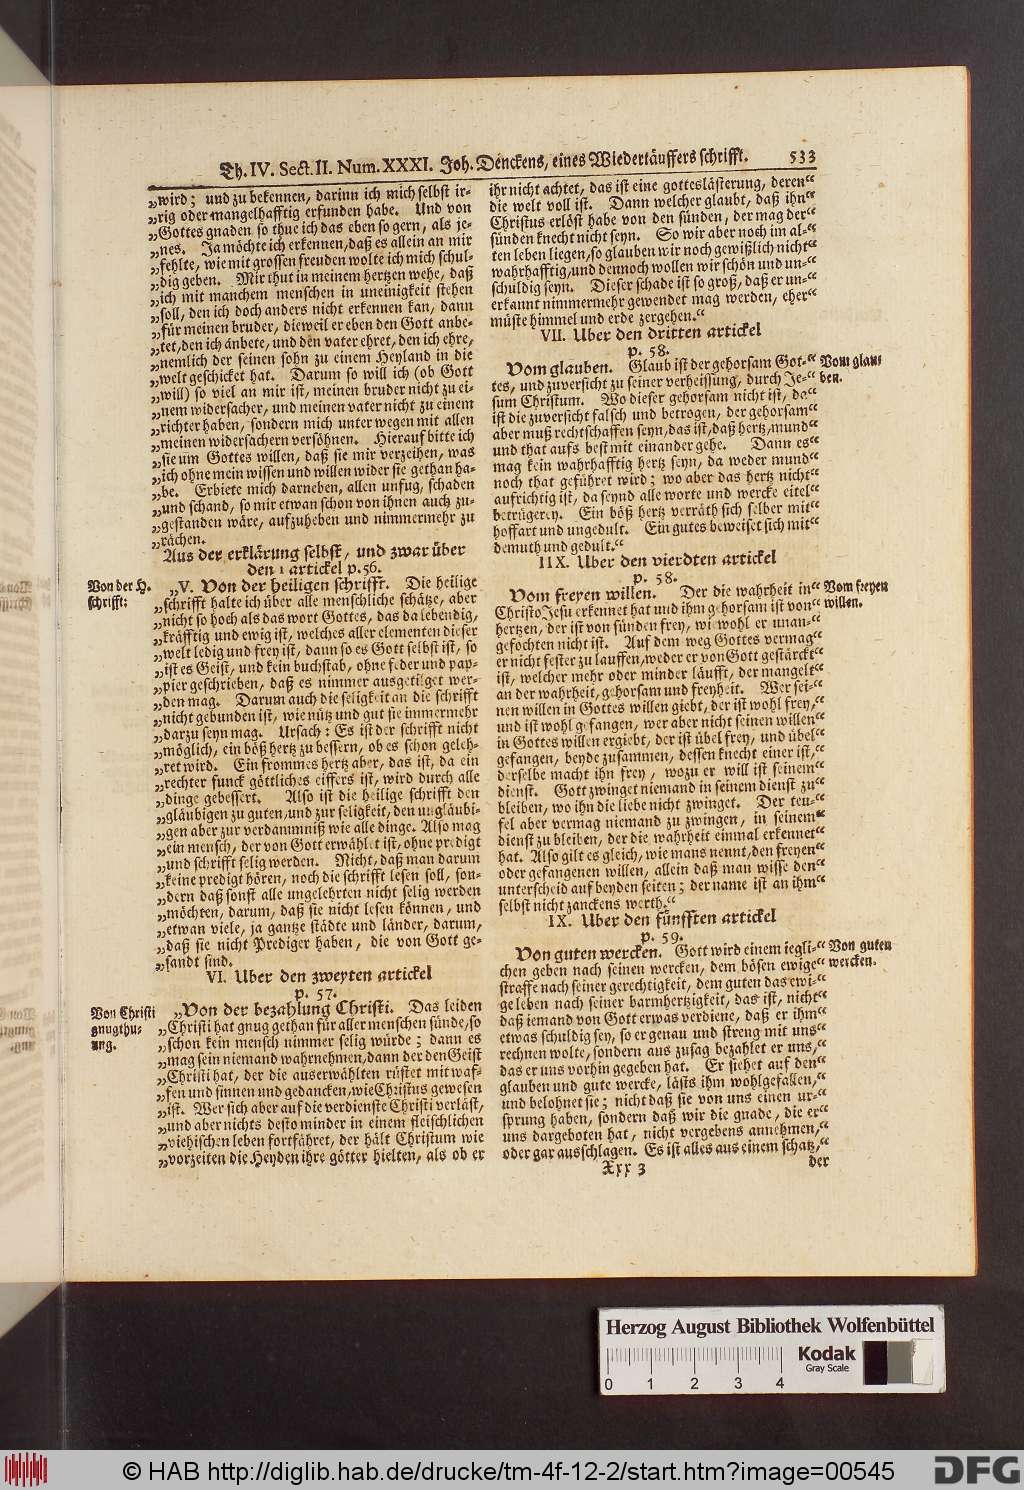 Th. IV. Sect. II. Num. XXXI. Joh. Denckens, eines Wiedertäuffers schrifft. 533
„wird; und zu bekennen, darinn ich mich selbst ir-
„rig oder mangelhafftig erfunden habe. Und von
„Gottes gnaden so thue ich das eben so gern, als je-
„nes. Ja möchte ich erkennen, daß es allein an mir
„fehlte, wie mit grossen freuden wolte ich mich schul-
„dig geben. Mir thut in meinem hertzen wehe, daß
„ich mit manchem menschen in uneinigkeit stehen
„soll, den ich doch anders nicht erkennen kan, dann
„für meinen bruder, dieweil er eben den Gott anbe-
„tet, den ich anbete, und den vater ehret, den ich ehre,
„nemlich der seinen sohn zu einem Heyland in die
„welt geschicket hat. Darum so will ich (ob Gott
„will) so viel an mir ist, meinen bruder nicht zu ei-
„nem widersacher, und meinen vater nicht zu einem
„richter haben, sondern mich unter wegen mit allen
„meinen widersachern versöhnen. Hierauf bitte ich
„sie um Gottes willen, daß sie mir verzeihen, was
„ich ohne mein wissen und willen wider sie gethan ha-
„be. Erbiete mich darneben, allen unfug, schaden
„und schand, so mir etwan schon von ihnen auch zu-
„gestanden wäre, aufzuheben und nimmermehr zu
„rächen.
Aus der erklärung selbst, und zwar über
den 1 artickel p. 56.
Von der H.
schrifft:
„V. Von der heiligen schrifft. Die heilige
„schrifft halte ich über alle menschliche schätze, aber
„nicht so hoch als das wort Gottes, das da lebendig,
„kräfftig und ewig ist, welches aller elementen dieser
„welt ledig und frey ist, dann so es Gott selbst ist, so
„ist es Geist, und kein buchstab, ohne feder und pap-
„pier geschrieben, daß es nimmer ausgetilget wer-
„den mag. Darum auch die seligkeit an die schrifft
„nicht gebunden ist, wie nütz und gut sie immermehr
„darzu seyn mag. Ursach: Es ist der schrifft nicht
„möglich, ein böß hertz zu bessern, ob es schon geleh-
„ret wird. Ein frommes hertz aber, das ist, da ein
„rechter funck göttliches eiffers ist, wird durch alle
„dinge gebessert. Also ist die heilige schrifft den
„gläubigen zu guten, und zur seligkeit, den ungläubi-
„gen aber zur verdammniß wie alle dinge. Also mag
„ein mensch, der von Gott erwählet ist, ohne predigt
„und schrifft selig werden. Nicht, daß man darum
„keine predigt hören, noch die schrifft lesen soll, son-
„dern daß sonst alle ungelehrten nicht selig werden
„möchten, darum, daß sie nicht lesen können, und
„etwan viele, ja gantze städte und länder, darum,
„daß sie nicht Prediger haben, die von Gott ge-
„sandt sind.
VI. Uber den zweyten artickel
p. 57.
Von Christi
gnugthu-
ung.
„Von der bezahlung Christi. Das leiden
„Christi hat gnug gethan für aller menschen sünde, so
„schon kein mensch nimmer selig würde; dann es
„mag sein niemand wahrnehmen, dann der den Geist
„Christi hat, der die auserwählten rüstet mit waf-
„fen und sinnen und gedancken, wie Christus gewesen
„ist. Wer sich aber auf die verdienste Christi verläst,
„und aber nichts desto minder in einem fleischlichen
„viehischen leben fortfähret, der hält Christum wie
„vorzeiten die Heyden ihre götter hielten, als ob er
ihr nicht achtet, das ist eine gotteslästerung, deren“
die welt voll ist. Dann welcher glaubt, daß ihn“
Christus erlöst habe von den sünden, der mag der“
sünden knecht nicht seyn. So wir aber noch im al-“
ten leben liegen, so glauben wir noch gewißlich nicht“
wahrhafftig, und dennoch wollen wir schön und un-“
schuldig seyn. Dieser schade ist so groß, daß er un-“
erkannt nimmermehr gewendet mag werden, eher“
müste himmel und erde zergehen.“
VII. Uber den dritten artickel
p. 58.
Vom glauben. Glaub ist der gehorsam Got-“
Vom glau-
ben.
tes, und zuversicht zu seiner verheissung, durch Je-“
sum Christum. Wo dieser gehorsam nicht ist, da“
ist die zuversicht falsch und betrogen, der gehorsam“
aber muß rechtschaffen seyn, das ist, daß hertz, mund“
und that aufs best mit einander gehe. Dann es“
mag kein wahrhafftig hertz seyn, da weder mund“
noch that geführet wird; wo aber das hertz nicht“
aufrichtig ist, da seynd alle worte und wercke eitel“
betrügerey. Ein böß hertz verräth sich selber mit“
hoffart und ungedult. Ein gutes beweiset sich mit“
demuth und gedult.“
IIX. Uber den vierdten artickel
p. 58.
Vom freyen willen. Der die wahrheit in“
Vom freyen
willen.
Christo Jesu erkennet hat und ihm gehorsam ist von“
hertzen, der ist von sünden frey, wiwohl er unan-“
gefochten nicht ist. Auf dem weg Gottes vermag“
er nicht fester zu lauffen, weder er von Gott gestärckt“
ist, welcher mehr oder minder läufft, der mangelt“
an der wahrheit, gehorsam und freyheit. Wer sei-“
nen willen in Gottes willen giebt, der ist wohl frey,“
und ist wohl gefangen, wer aber nicht seinen willen“
in Gottes willen ergiebt, der ist übel frey, und übel“
gefangen, beyde zusammen, dessen knecht einer ist,“
derselbe macht ihn frey, wozu er will ist seinem“
dienst. Gott zwinget niemand in seinem dienst zu“
bleiben, wo ihn die liebe nicht zwinget. Der teu-“
fel aber vermag niemand zu zwingen, in seinem“
dienst zu bleiben, der die wahrheit einmal erkennet“
hat. Also gilt es gleich, wie mans nennt, den freyen“
oder gefangenen willen, allein daß man wisse den“
unterscheid auf beyden seiten; der name ist an ihm“
selbst nicht zanckens werth.“
IX. Uber den fünfften artickel
p. 59.
Von guten wercken. Gott wird einem iegli-“
Von guten
wercken.
chen geben nach seinen wercken, dem bösen ewige“
straffe nach seiner gerechtigkeit, dem guten das ewi-“
ge leben nach seiner barmhertzigkeit, das ist, nicht“
daß iemand von Gott etwas verdiene, daß er ihm“
etwas schuldig sey, so er genau und streng mit uns“
rechnen wolte, sondern aus zusag bezahlet er uns,“
das er uns vorhin gegeben hat. Er siehet auf den“
glauben und gute wercke, lästs ihm wohlgefallen,“
und belohnet sie; nicht daß sie von uns einen ur-“
sprung haben, sondern daß wir die gnade, die er“
uns dargeboten hat, nicht vergebens annehmen,“
oder gar ausschlagen. Es ist alles aus einem schatz,“
Xxx 3
der
Herzog August Bibliothek Wolfenbüttel
Kodak
Gray Scale
0 1 2 3 4
© HAB http://diglib.hab.de/drucke/tm-4f-12-2/start.htm?image=00545
DFG